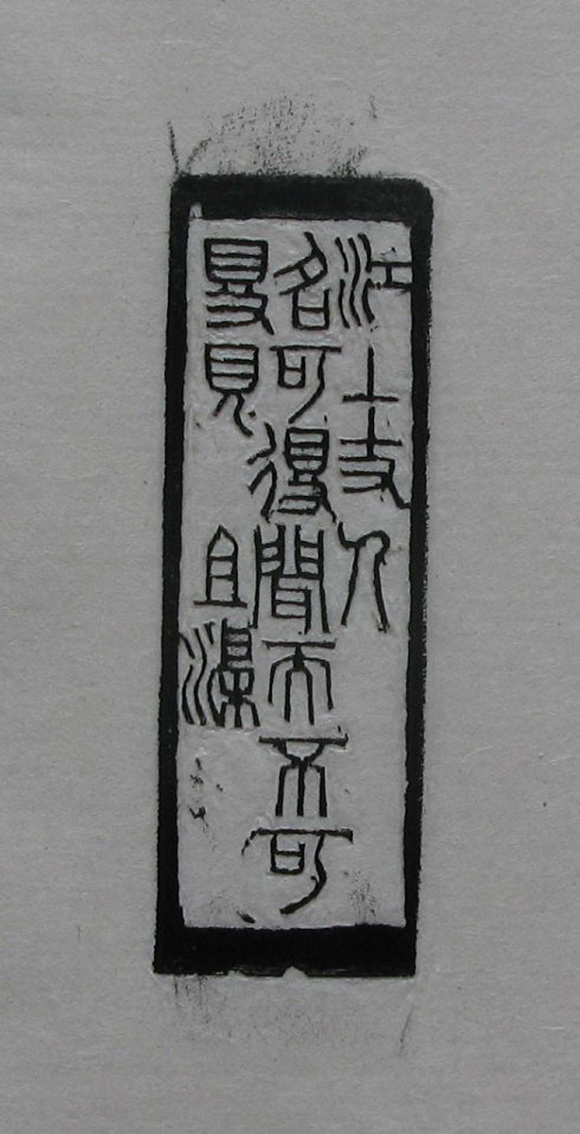 江上丈人
名可得聞而不可
㝵見 且